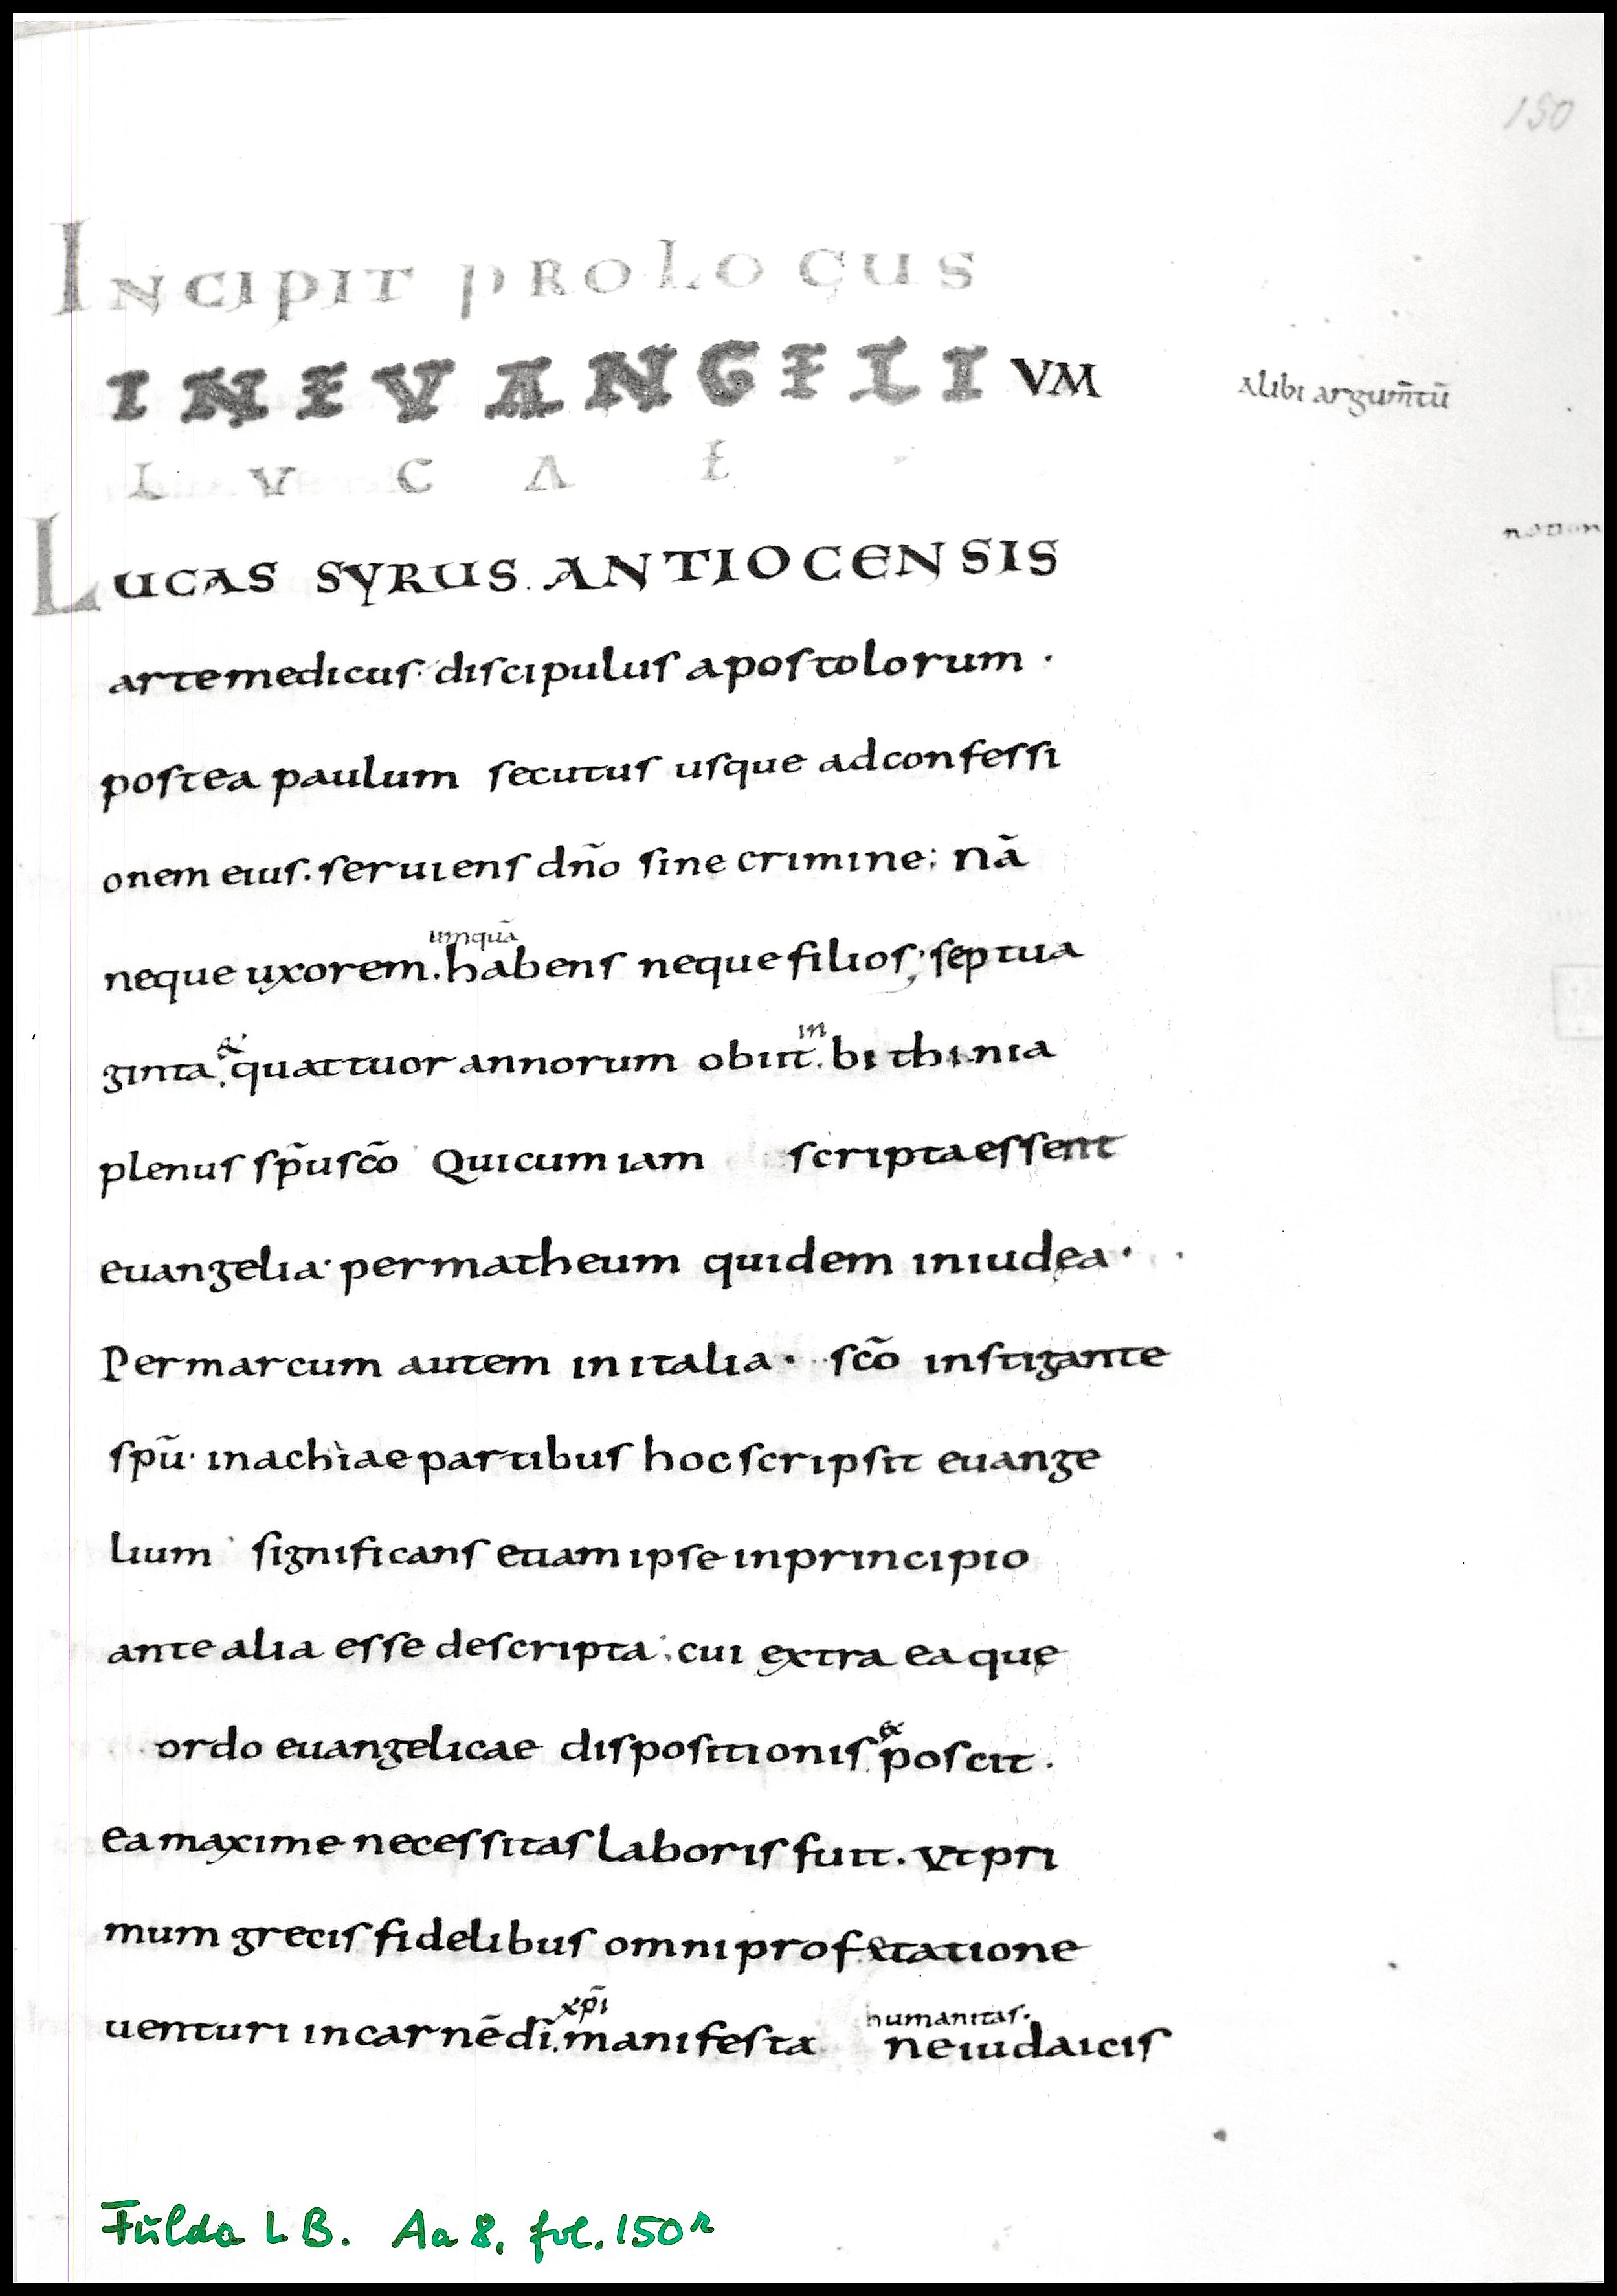 150
INCIPIT PROLOGUS
IN EVANGELIVM
alibi argum̅tū
LVCAE
LUCAS SYRUS. ANTIOCENSIS
arte medicus· discipulus apostolorum ·
postea paulum secutus usque ad confessi
onem eius. seruiens dn̄o sine crimine; nā
umquā
neque uxorem. habens neque filios; septua
& in
ginta. quattuor annorum obiit. bithinia
plenus sp̄u sc̄o Qui cum iam scripta essent
euangelia· per matheum quidem in iudęa·
Per marcum autem in italia· sc̄o instigante
spū· in achiae partibus hoc scripsit euange
lium significans etiam ipse in principio
ante alia esse descripta; cui extra ea quę
&
ordo euangelicae dispositionis. poscit.
ea maxime necessitas laboris fuit. Vt pri
mum grecis fidelibus omni profetatione
xp̄i humanitas.
uenturi in carnē dī. manifesta ne iudaicis
Fulda LB. Aa 8, fol. 150r